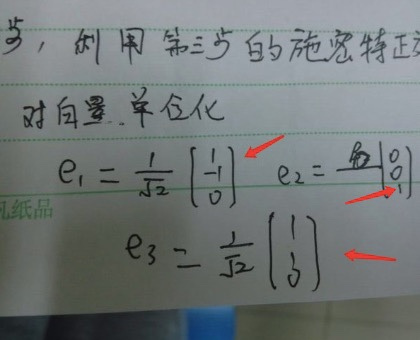 步，利用第三步的施密特正交
对向量单位化
e₁ = 1/√2 [1 -1 0] e₂ = [0 0 1]
凡纸品
e₃ = 1/√2 [1 1 0]